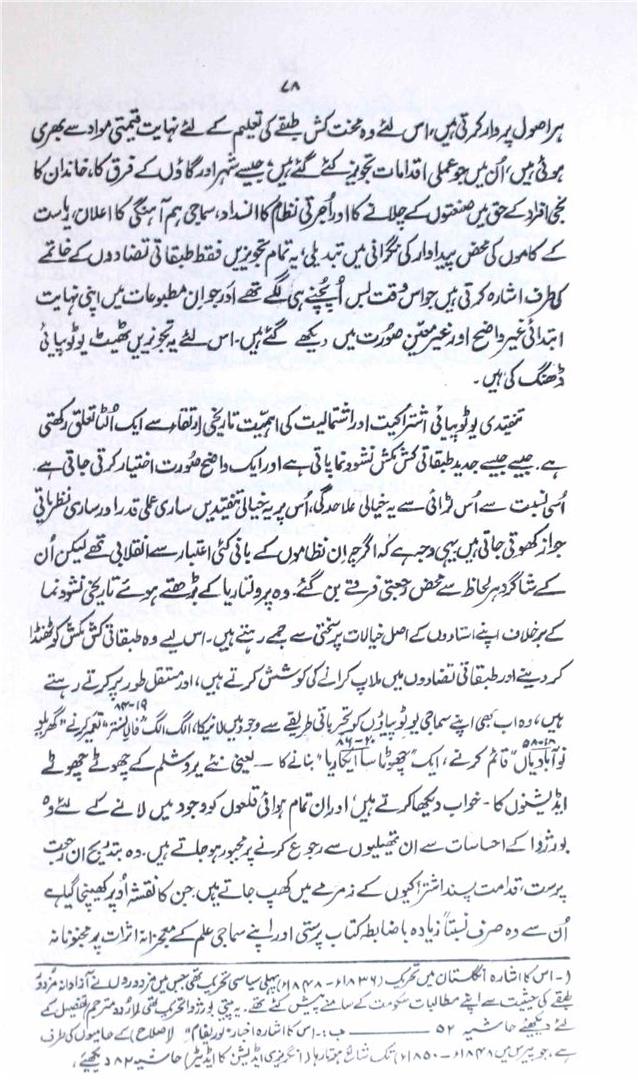 ۷۸
ہر اصول پر وار کرتی ہیں، اس لئے وہ محنت کش طبقے کی تعلیم کے لئے نہایت قیمتی مواد سے بھری
ہوئی ہیں، اُن میں جو عملی اقدامات تجویز کئے گئے ہیں؛ جیسے شہر اور گاؤں کے فرق کا، خاندان کا
نجی افراد کے حق میں صنعتوں کے چلانے کا اور اُجرتی نظام کا انسداد، سماجی ہم آہنگی کا اعلان، ریاست
کے کاموں کی محض پیداوار کی نگرانی میں تبدیلی؛ یہ تمام تجویزیں فقط طبقاتی تضادوں کے خاتمے
کی طرف اشارہ کرتی ہیں جو اس وقت بس اُپچنے ہی لگے تھے اور جو ان مطبوعات میں اپنی نہایت
ابتدائی غیر واضح اور غیر معین صورت میں دیکھے گئے ہیں۔ اس لئے یہ تجویزیں ٹھیٹ یوٹوپیائی
ڈھنگ کی ہیں۔
تنقیدی یوٹوپیائی اشتراکیت اور اشتمالیت کی اہمیت تاریخی ارتقاء سے ایک اُلٹا تعلق رکھتی
ہے۔ جیسے جیسے جدید طبقاتی کش مکش نشوونما پاتی ہے اور ایک واضح صورت اختیار کرتی جاتی ہے۔
اسی نسبت سے اُس لڑائی سے یہ خیالی علاحدگی، اُس پر یہ خیالی تنقیدیں ساری عملی قدر اور ساری نظریاتی
جواز کھوتی جاتی ہیں یہی وجہ ہے کہ اگرچہ ان نظاموں کے بانی کئی اعتبار سے انقلابی تھے لیکن اُن
کے شاگرد ہر لحاظ سے محض رجعتی فرقے بن گئے۔ وہ پرولتاریا کے بڑھتے ہوئے تاریخی نشوونما
کے برخلاف اپنے استادوں کے اصل خیالات پر سختی سے جمے رہتے ہیں۔ اس لیے وہ طبقاتی کش مکش کو ٹھنڈا
کر دینے اور طبقاتی تضادوں میں ملاپ کرانے کی کوشش کرتے ہیں، اور مستقل طور پر کرتے رہتے
ہیں، وہ اب بھی اپنے سماجی یوٹوپیاؤں کو تجرباتی طریقے سے وجود میں لانے کا، الگ الگ تعمیر کرنے "گھریلو
نو آبادیاں" قائم کرنے، ایک "چھوٹا سا ایکاریا" بنانے کا — یعنی نئے یروشلم کے چھوٹے چھوٹے
ایڈیشنوں کا - خواب دیکھا کرتے ہیں اور ان تمام ہوائی قلعوں کو وجود میں لانے کے لئے وہ
بورژوا کے احساسات سے ان تھیلیوں سے رجوع کرنے پر مجبور ہو جاتے ہیں۔ وہ بتدریج ان رجعت
پرست، قدامت پسند اشتراکیوں کے زمرے میں کھپ جاتے ہیں۔ جن کا نقشہ اُوپر کھینچا گیا ہے
اُن سے وہ صرف نسبتاً زیادہ باضابطہ کتاب پرستی اور اپنے سماجی علم کے معجزانہ اثرات پر مجنونانہ
اس کا اشارہ انگلستان میں تحریک (۱۸۳۶ء - ۱۸۴۸ء) پہلی سیاسی تحریک تھی جس میں مزدوروں نے آزادانہ مزدور
طبقے کی حیثیت سے اپنے مطالبات حکومت کے سامنے پیش کئے تھے۔ یہ بورژوا تحریک تھی (اردو مترجم) تفصیل کے
لئے دیکھئے حاشیہ ۵۲ — ب:۔ اس کا اشارہ اخبار (اصلاح) کے حامیوں کی طرف
ہے، جو پیرس میں ۱۸۴۳ء - ۱۸۵۰ء تک شائع ہوتا رہا (انگریزی ایڈیشن کا ایڈیٹر) حاشیہ ۸۲ دیکھئے،